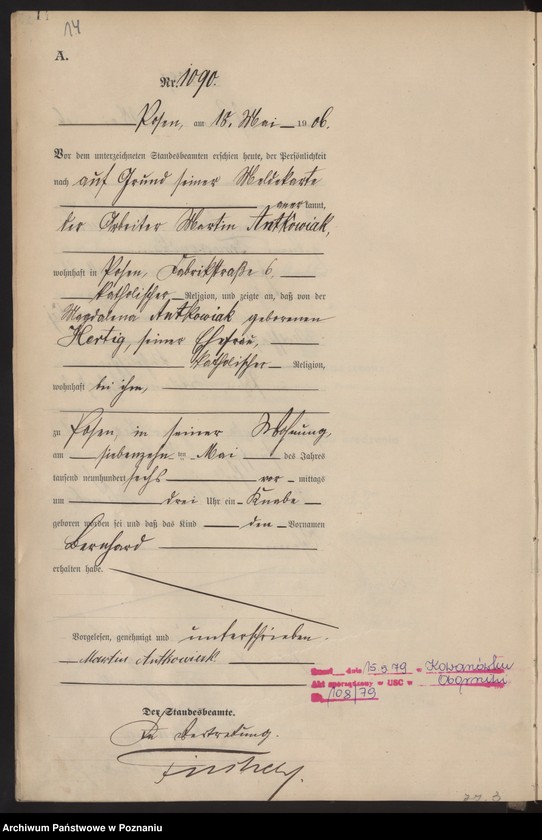 14
A.
Nr. 1090.
Posen, am 18. Mai 1906.
Vor dem unterzeichneten Standesbeamten erschien heute, der Persönlichkeit
nach auf Grund seiner Meldekarte
anerkannt,
der Arbeiter Martin Antkowiak,
wohnhaft in Posen, Fabrikstraße 6,
katholischer Religion, und zeigte an, daß von der
Magdalena Antkowiak geborenen
Hertig, seiner Ehefrau,
katholischer Religion,
wohnhaft bei ihm,
zu Posen, in seiner Wohnung,
am siebenzehnten Mai des Jahres
tausend neunhundert sechs vormittags
um drei Uhr ein Knabe
geboren worden sei und daß das Kind den Vornamen
Bernhard
erhalten habe.
Vorgelesen, genehmigt und unterschrieben.
Martin Antkowiak.
Der Standesbeamte.
In Vertretung.
Zmarł dnia 15.3.79 w Kowanówku
Akt sporządzony w USC w Oborniki
Nr 108/79
Archiwum Państwowe w Poznaniu